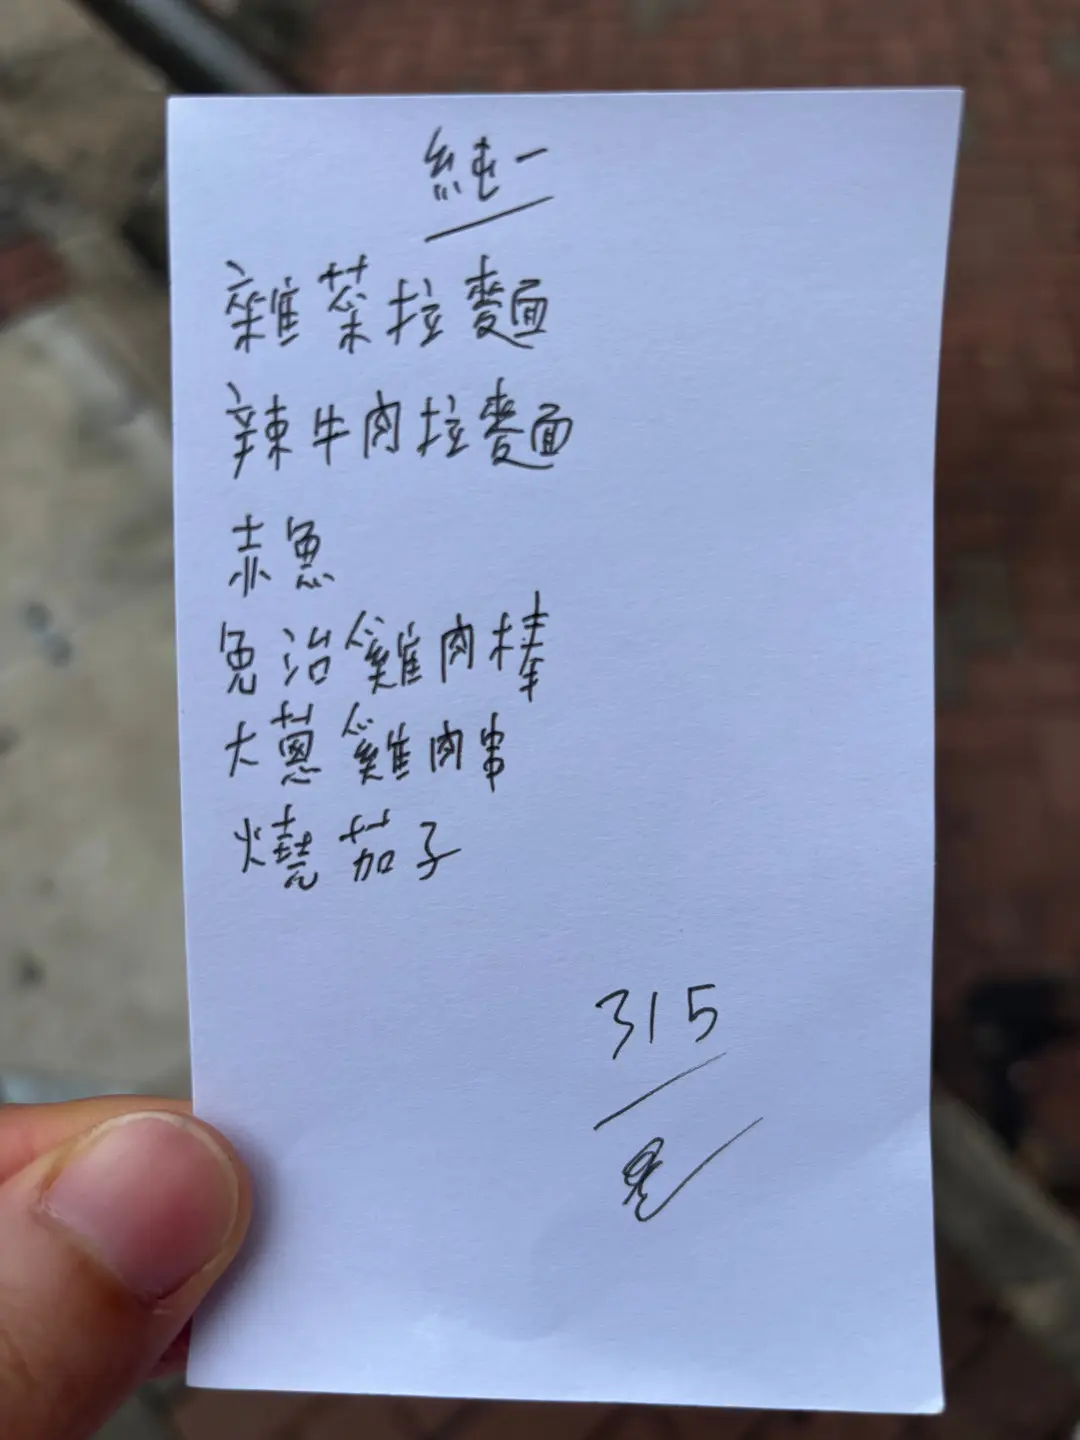 純一
雜菜拉麵
辣牛肉拉麵
赤魚
免治雞肉棒
大蔥雞肉串
燒茄子
315